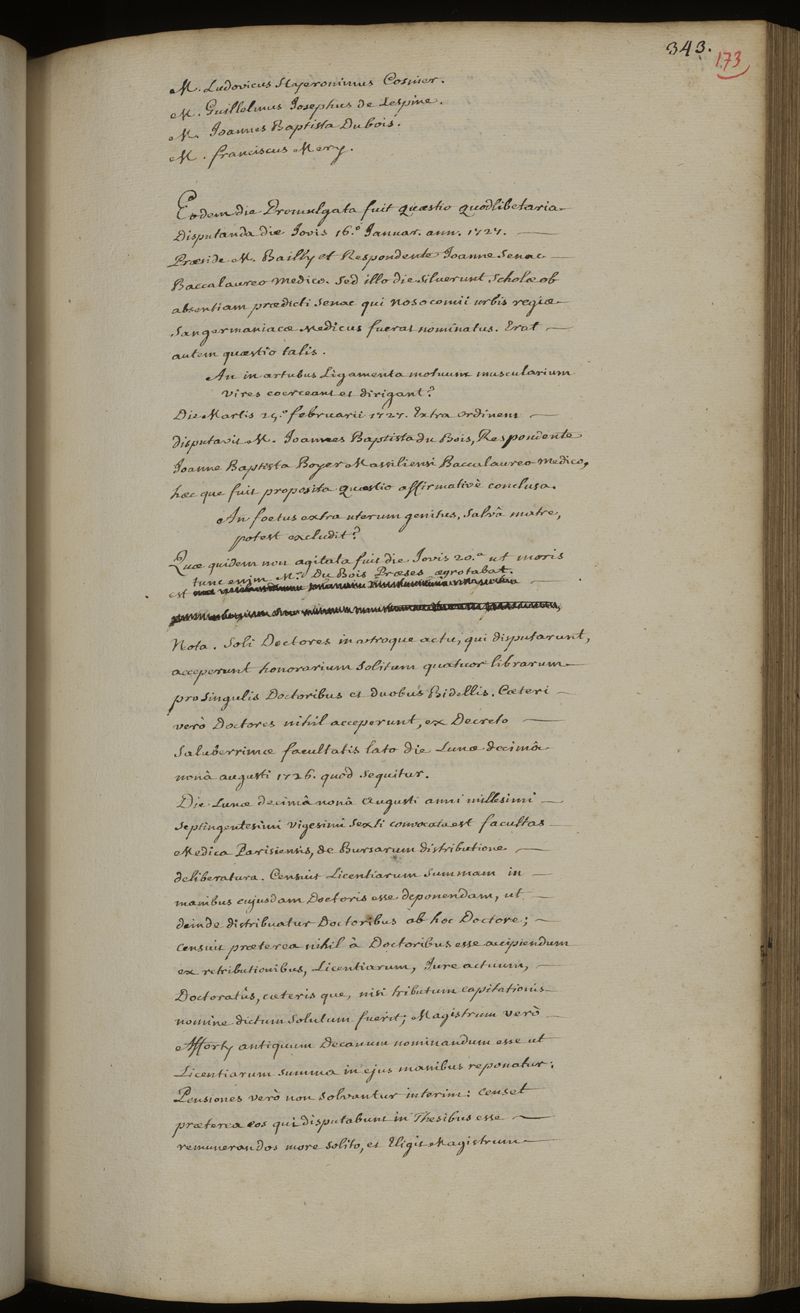 343.
173
M. Ludovicus Hyeronimus Cosnier.
M. Guillelmus Josephus de Lespine.
M. Joannes Baptista Dubois.
M. franciscus Mery.
Eodem die Promulgata fuit quæstio quodlibetaria
Disputanda die Jovis 16.º Januar. ann. 1727.
Præside M. Bailly et Respondente Joanne Senac
Baccalaureo medico. Sed illo die siluerunt Scholæ ob
absentiam prædicti Senac qui nosocomii urbis regiæ
Sangermaniacæ Medicus fuerat nominatus. Erat
autem quæstio talis.
An in artubus Ligamenta motuum muscularium
vires coerceant et dirigant?
Die Martis 25.º februarii 1727. Extra ordinem
disputavit M. Joannes Baptista du Bois, Respondente
Joanne Baptista Boyer Massiliensi Baccalaureo medico,
hæc que fuit proposita quæstio affirmativè conclusa.
An foetus extra uterum genitus, salvâ matre,
potest excludi?
Quæ quidem non agitata fuit die Jovis 20.ª ut moris
tunc enim M.r Du Bois Præses ægrotabat.
est
Nota. Soli Doctores in utroque actu, qui disputarunt,
acceperunt honorarium solitum quatuor librarum
pro singulis Doctoribus et duobus Bidellis. Cæteri
verò Doctores nihil acceperunt, ex Decreto
Saluberrimæ facultatis lato die Lunæ decimâ
nonâ augusti 1726. quod sequitur.
Die Lunæ decimâ nonâ Augusti anni millesimi
septingentesimi vigesimi sexti convocata est facultas
Medica Parisiensis, de Bursarum distributione
deliberatura. Censuit Licentiarum summam in
manibus cujusdam Doctoris esse deponendam, ut
deinde distribuatur Doctoribus ab hoc Doctore;
Censuit præterea nihil à Doctoribus esse accipiendum
ex retributionibus, Licentiarum, Jure actuum,
Doctoratûs, cæteris que, nisi tributum capitationis
nomine dictum solutum fuerit; Magistrum verò
Afforty antiquum Decanum nominandum esse ut
Licentiarum summa in ejus manibus reponatur;
Pensiones verò non solvantur interim: Censet
præterea eos qui disputabunt in Thesibus esse
remunerandos more solito, et Eligit Magistrum